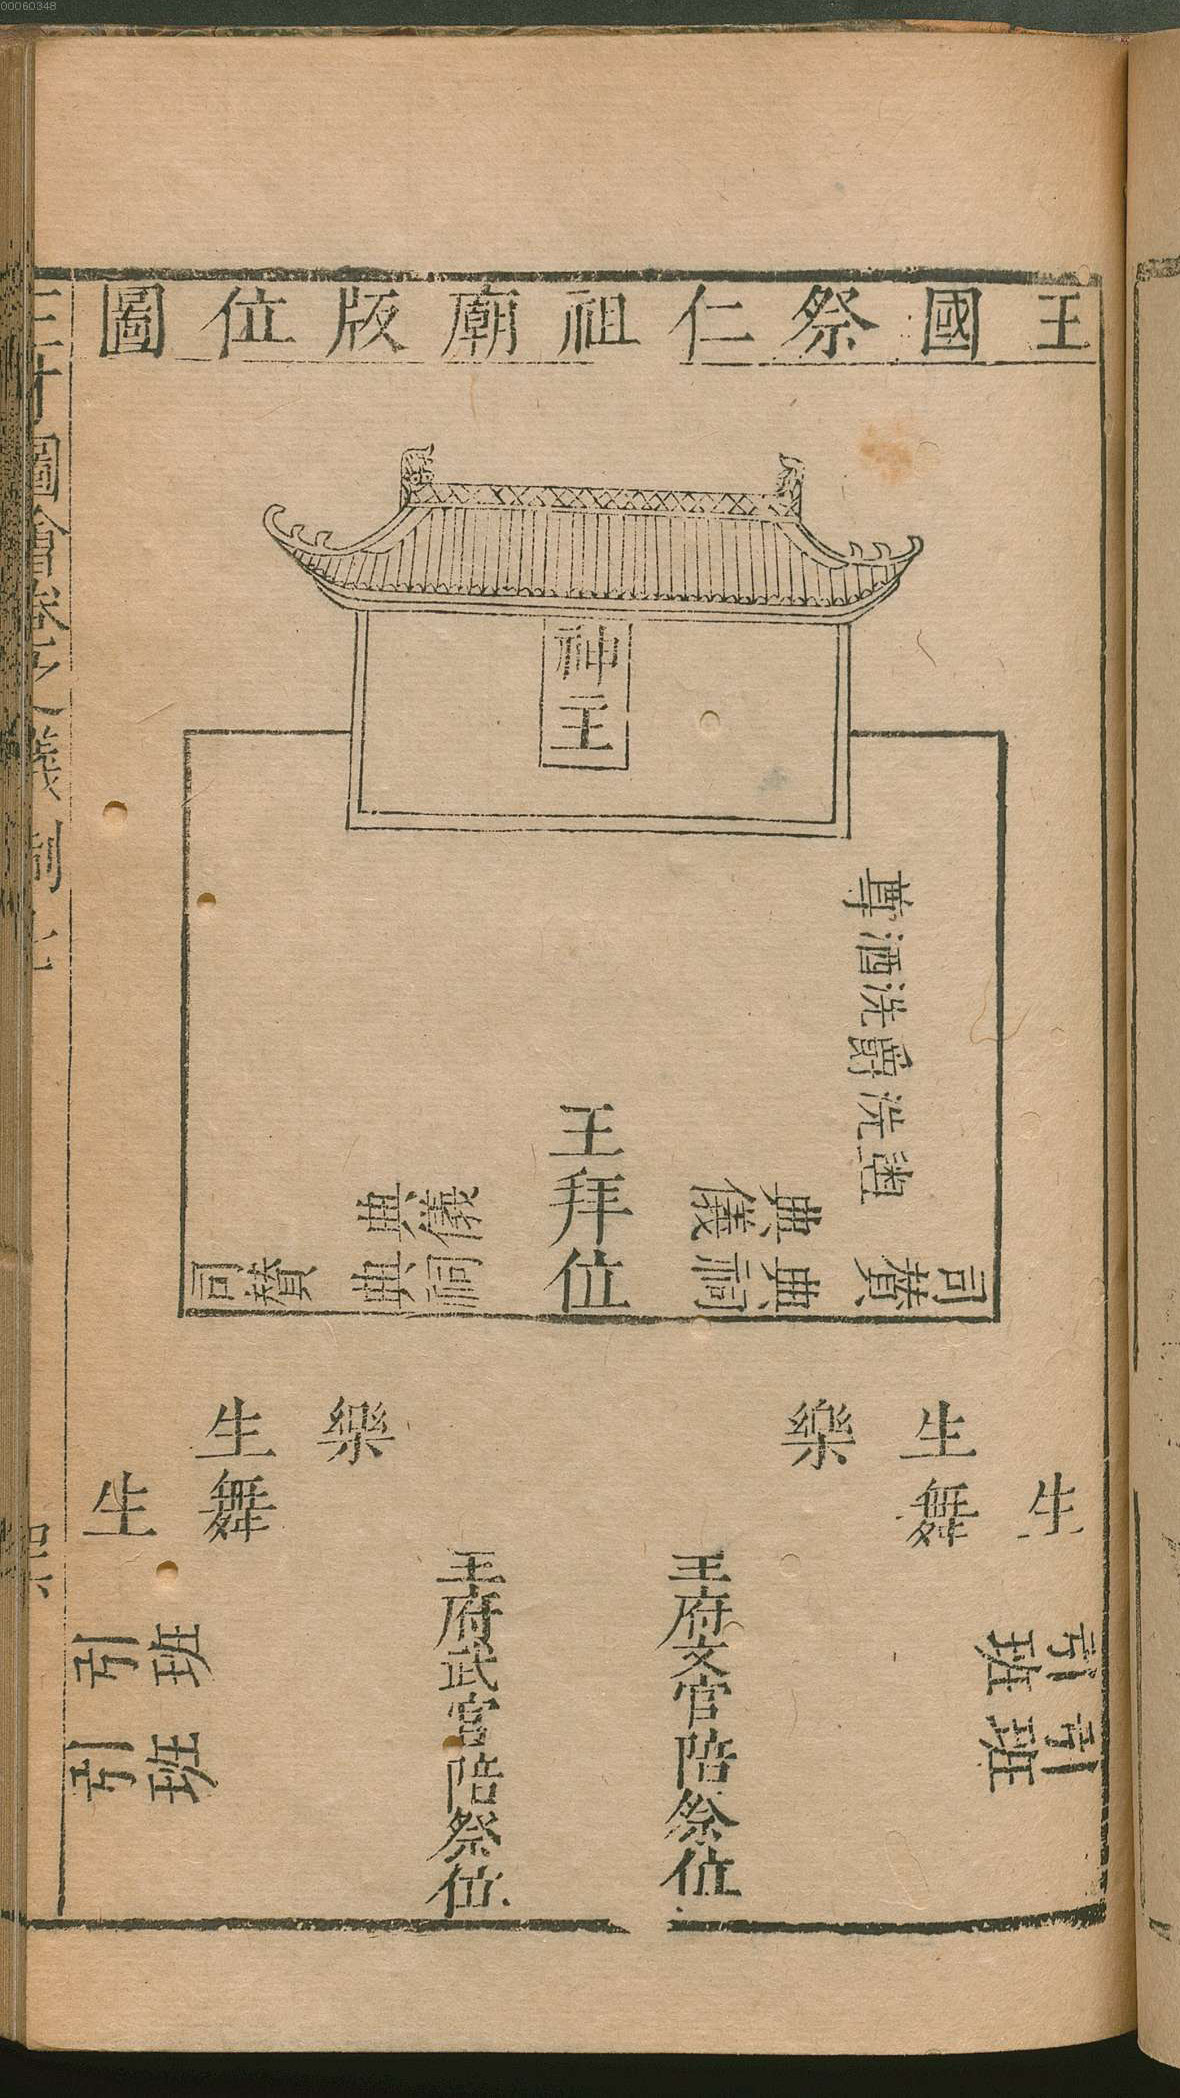 00060348
王國祭仁祖廟版位圖
神主
尊酒洗爵洗盥
王拜位
典儀
典儀
司贊
典祠
典祠
司贊
樂生
樂生
舞生
舞生
王府文官陪祭位
王府武官陪祭位
引班
引班
引班
引班
三才圖會